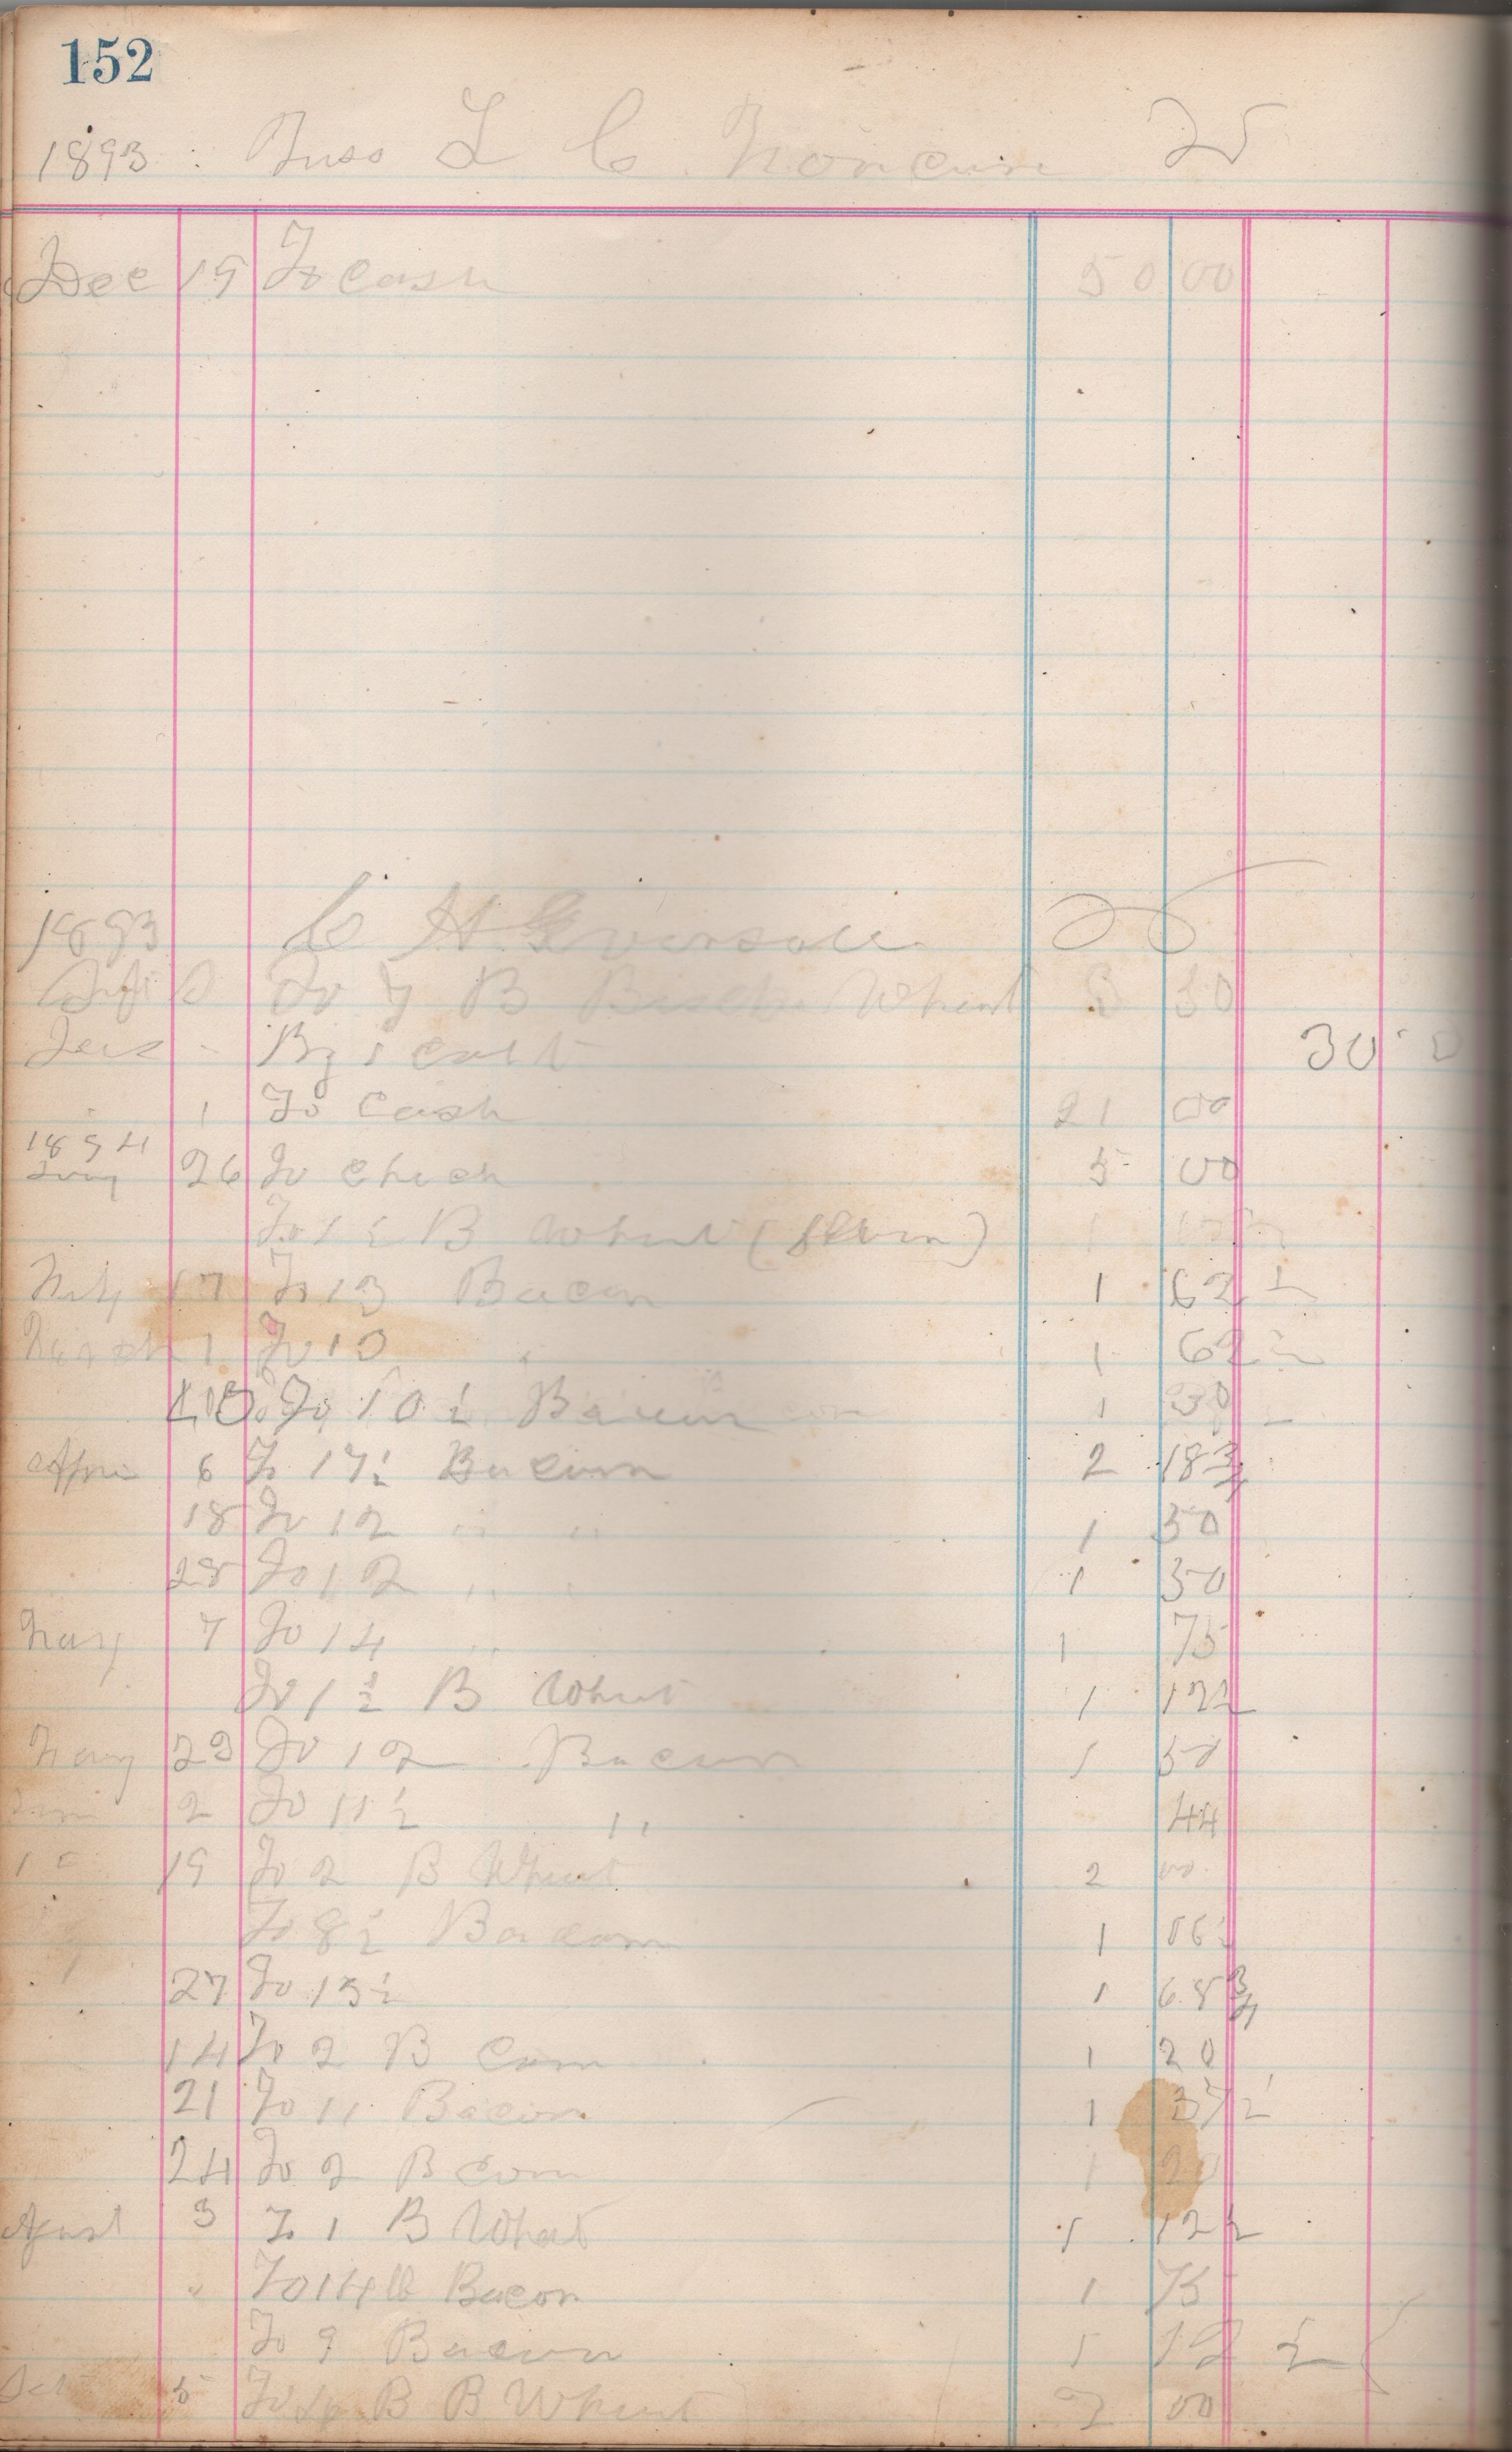 152
1893 L C Moncure
Dec 19 To cash 50 00
1893 C H Eversole
To B Wheat 30
Dec By 1 colt 30
1 To Cash 21 00
1894
26 To check 5 00
To 1½ B Wheat 1
17 To 13 Bacon 1 62½
March 1 To 13 " 1 62½
10 To 10½ Bacon 1 30
Apri 6 To 17½ Bacon 2 18¾
18 To 12 " " 1 50
28 To 12 " " 1 50
May 7 To 14 " 1 75
To 1½ B Wheat 1 12½
May 23 To 12 Bacon 1 50
2 To 11½ " 44
19 To 2 B Wheat 2 00
To 8½ Bacon 1 06½
27 To 13½ 1 68¾
14 To 2 B Corn 1 20
21 To 11 Bacon 1 37½
24 To 2 B Corn 1 20
Agust 3 To 1 B Wheat 1 12½
" To 14 lb Bacon 1 75
To 9 Bacon 1 12½
5 To B B Wheat 2 00